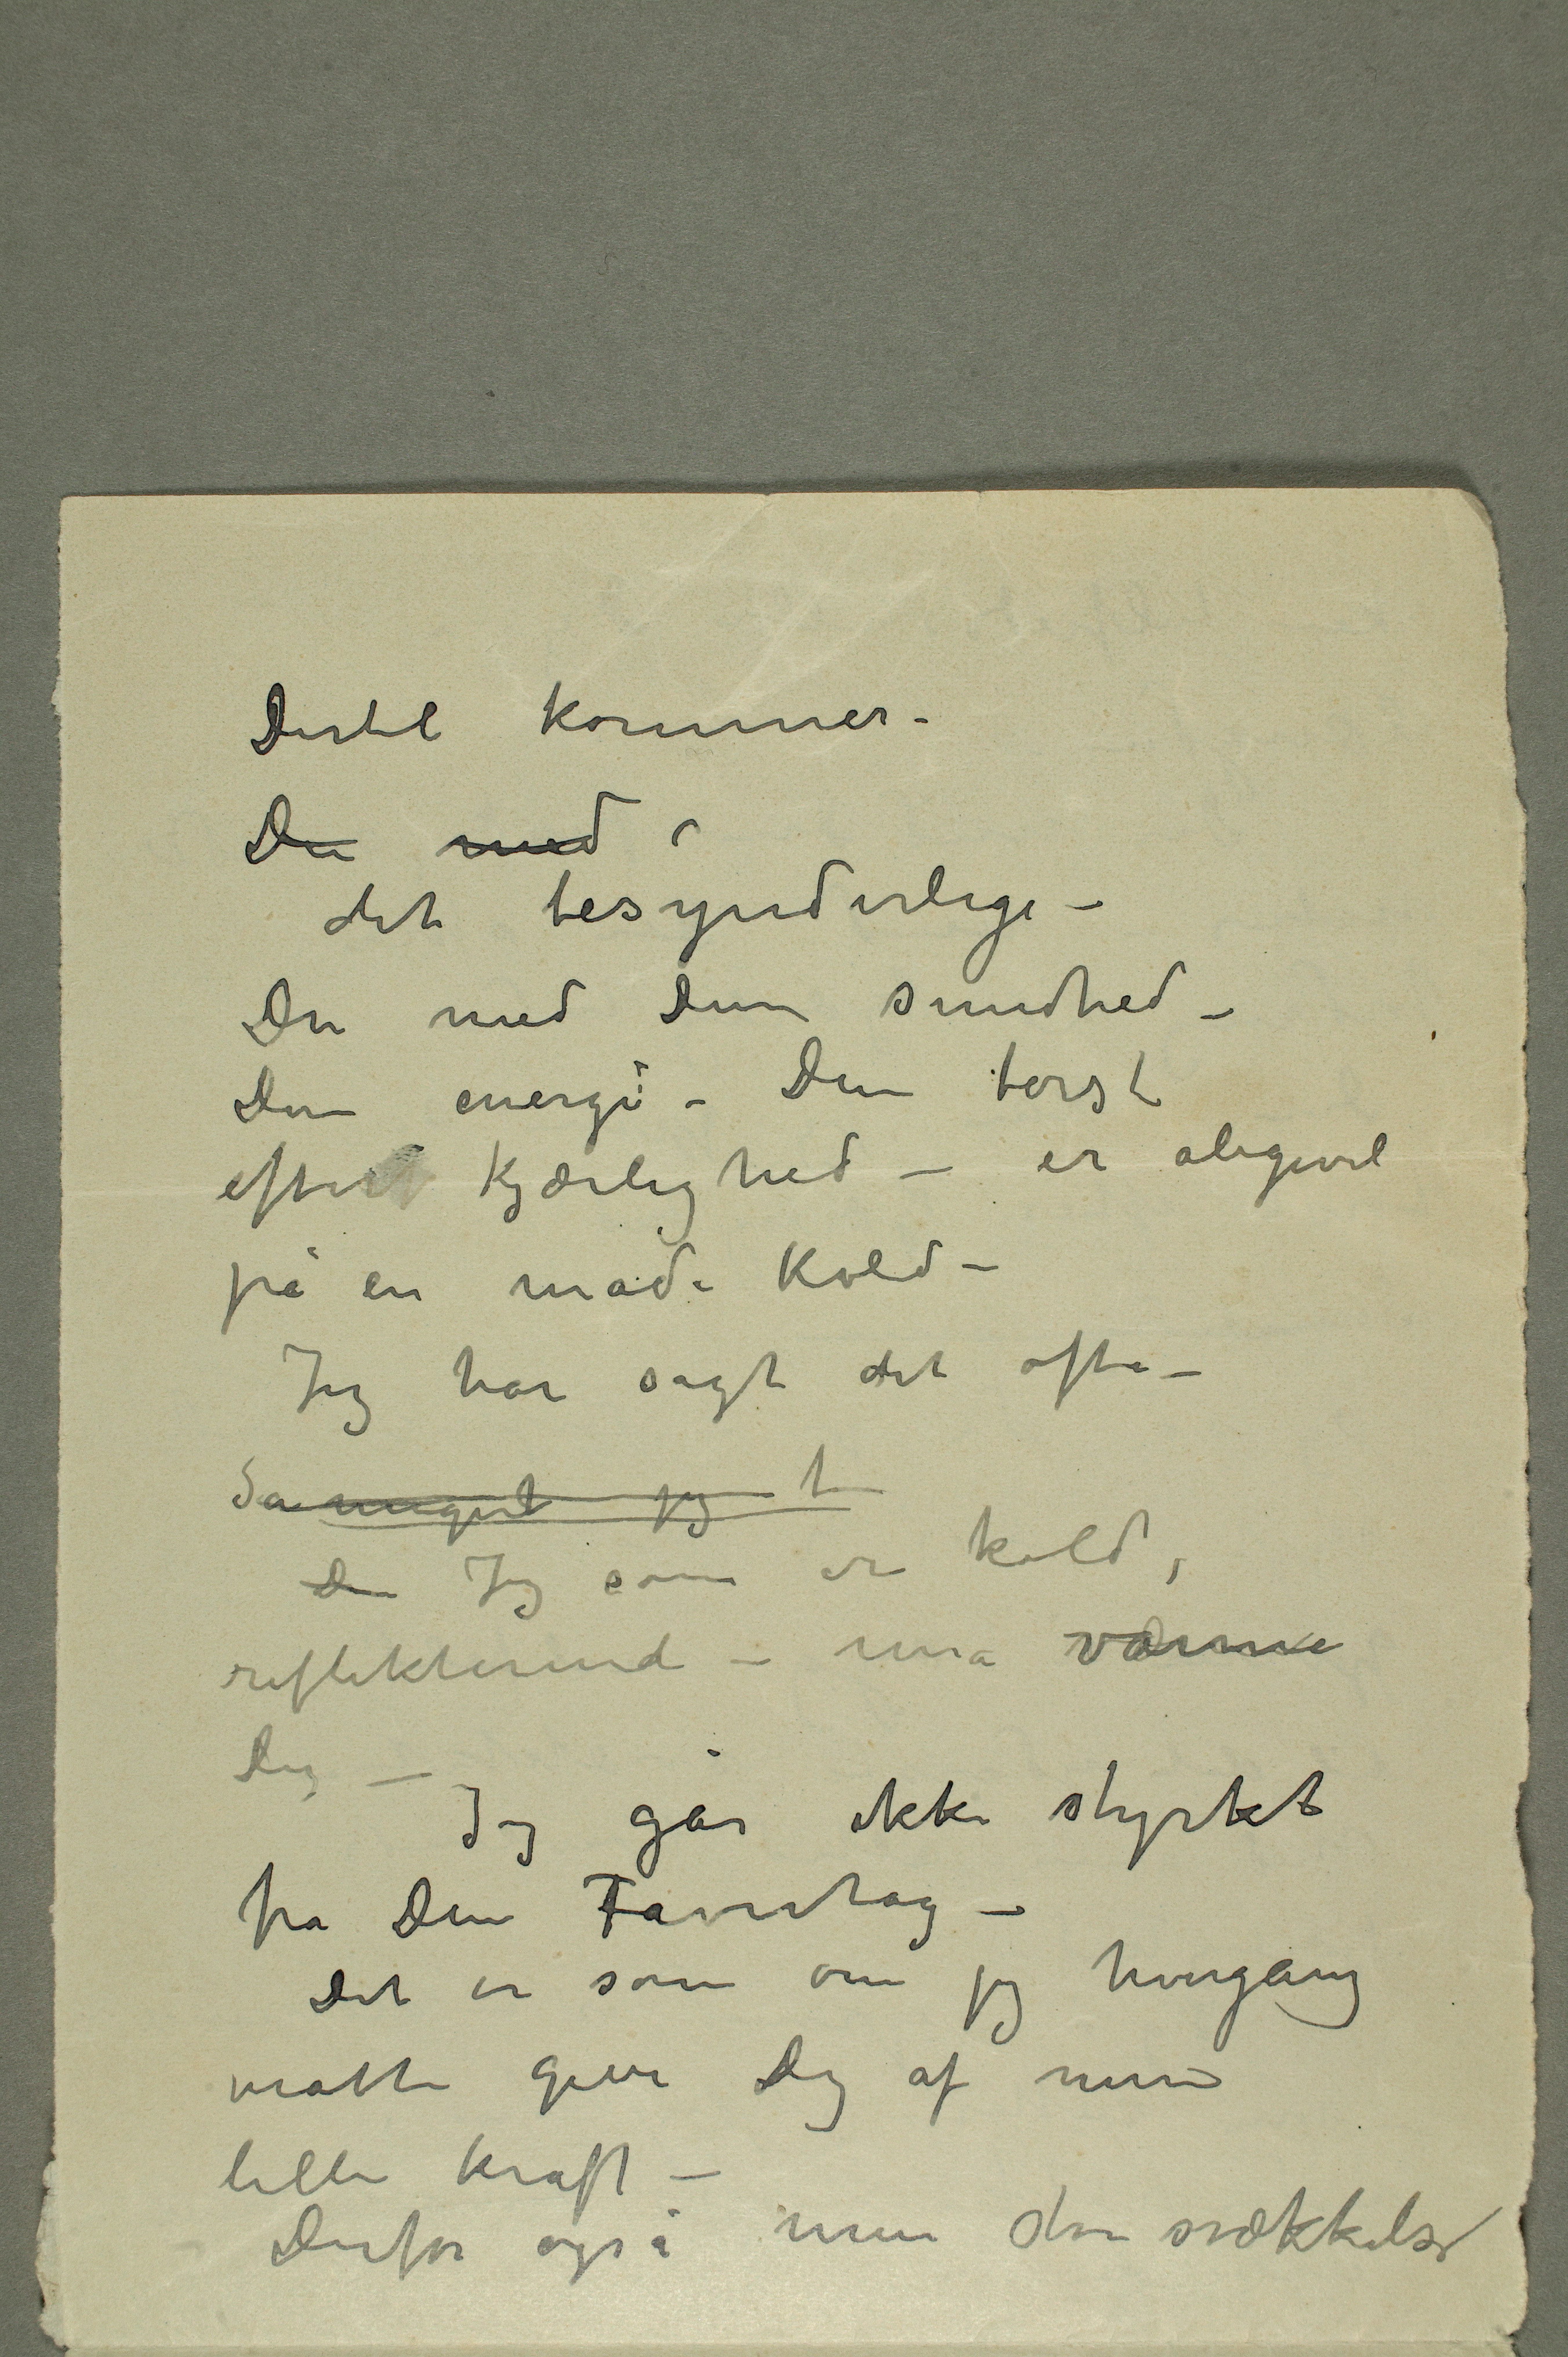 Dertil kommer –
Du med
det besynderlige –
Du med Din sundhed –
Din energi – Din tørst
efter Kjærlighed – er aligevel
på en måde Kold –
Jeg har sagt det ofte –
Så meget jeg t
Du Jeg som er kold,
reflekterende – må varme
Dig –
Jeg går ikke styrket
fra Din Favntag –
Det er som om jeg hvergang
måtte give Dig af min
lille kraft –
Derfor også min store svækkelse